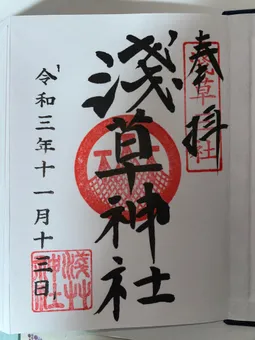 奉拝
淺草社
淺草神社
令和三年十一月十三日
淺草神社